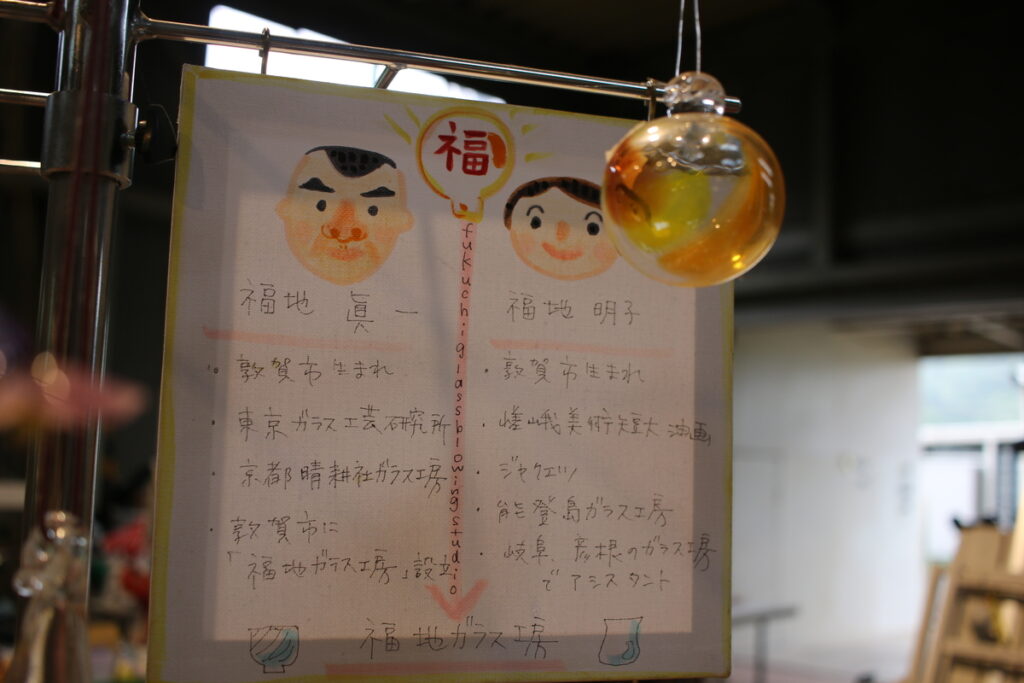 福
fukuchi glassblowing studio
福地 眞一
・敦賀市生まれ
・東京ガラス工芸研究所
・京都晴耕社ガラス工房
・敦賀市に
「福地ガラス工房」設立
福地 明子
・敦賀市生まれ
・嵯峨美術短大 油画
・ジャクエツ
・能登島ガラス工房
・岐阜、彦根のガラス工房
でアシスタント
福地ガラス工房